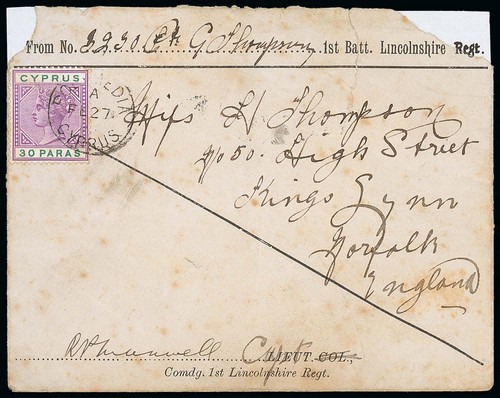 From No. 3230 Pte G. Thompson 1st Batt. Lincolnshire Regt.
CYPRUS
30 PARAS
A
27
CYPRUS
Miss L Thompson
No 50. High Street
Kings Lynn
Norfolk
England
Capt LIEUT. COL.,
Comdg. 1st Lincolnshire Regt.